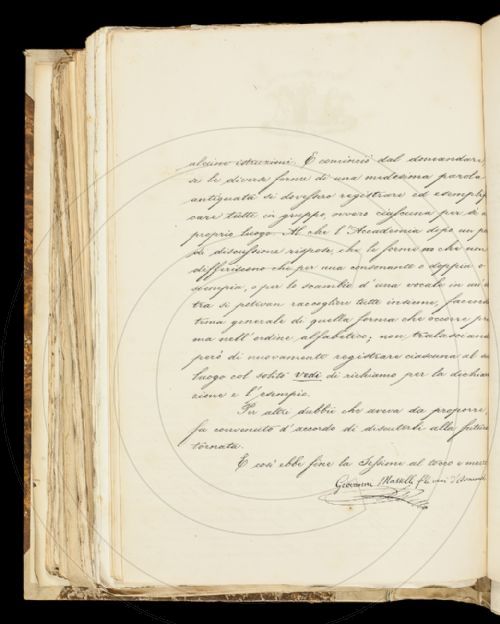 alcune istruzioni. E cominciò dal domandare
se le diverse forme di una medesima parola
antiquata si dovessero registrare ed esemplifi
care tutte in gruppo, ovvero ciascuna per sé a
proprio luogo. Al che l'Accademia dopo un po
di discussione rispose, che le forme che non
differiscono che per una consonante o doppia o
scempia, o per lo scambio d'una vocale in un'al
tra si potevan raccogliere tutte insieme, facendo
tema generale di quella forma che occorre pri
ma nell'ordine alfabetico; non tralasciando
però di nuovamente registrare ciascuna al suo
luogo col solito vedi di richiamo per la dichiara
zione e l'esempio.
Per altri dubbii che aveva da proporre,
fu convenuto d'accordo di discuterli alla futura
tornata.
E così ebbe fine la Sessione al tocco e mezzo
Giovanni